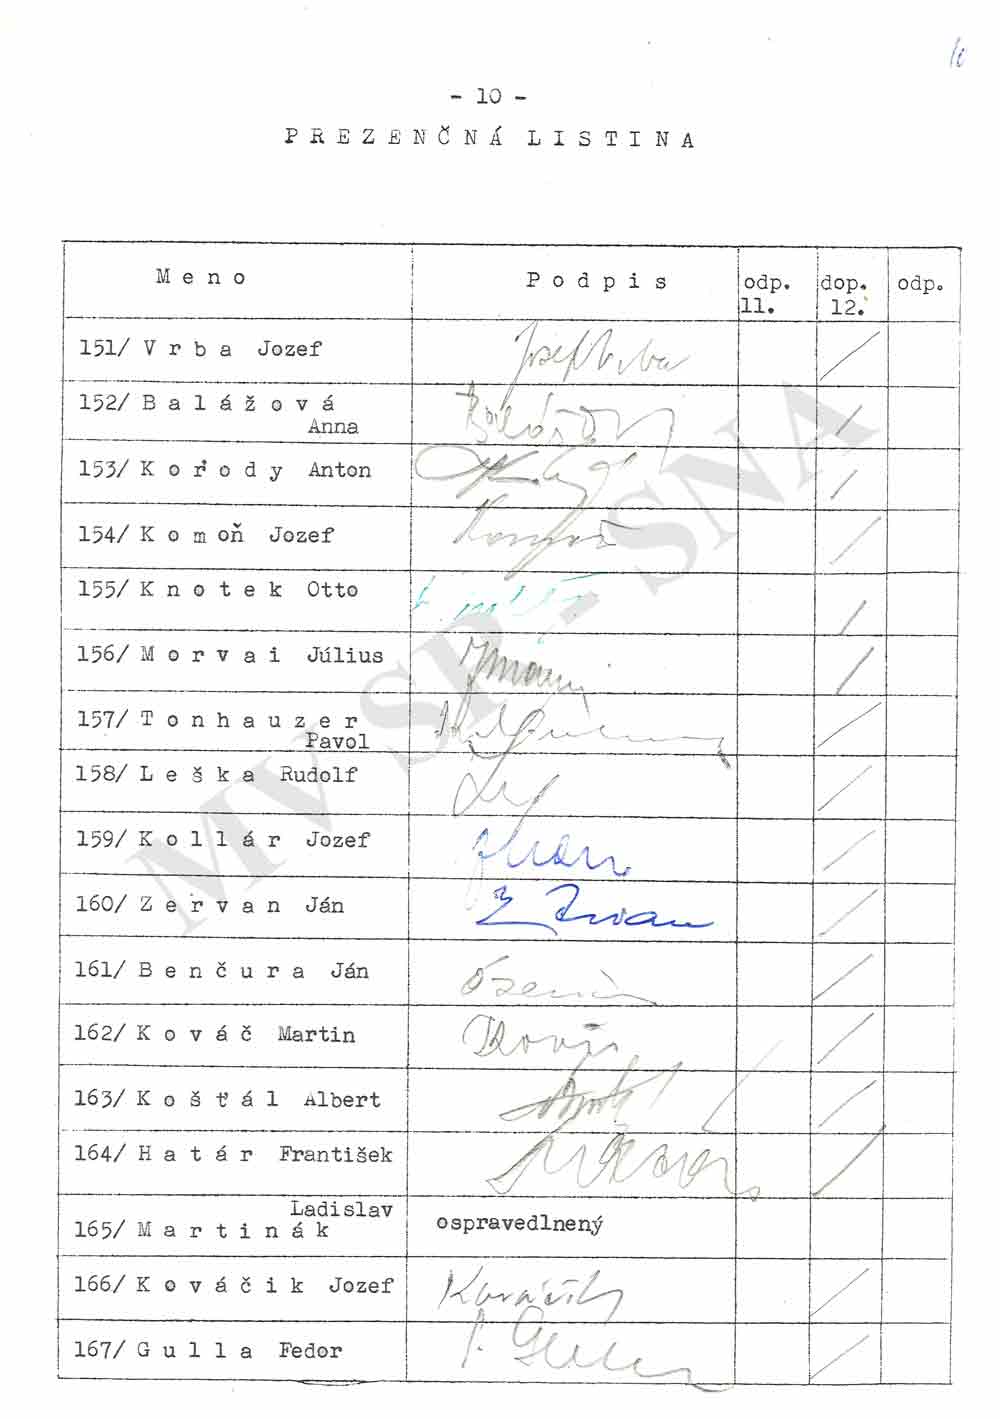 - 10 -
PREZENČNÁ LISTINA
Meno Podpis odp. 11. dop. 12. odp.
151/ Vrba Jozef Jozef Vrba
152/ Balážová Anna
153/ Koródy Anton
154/ Komoň Jozef
155/ Knotek Otto
156/ Morvai Július
157/ Tonhauzer Pavol
158/ Leška Rudolf
159/ Kollár Jozef
160/ Zervan Ján
161/ Benčura Ján
162/ Kováč Martin Kováč
163/ Košťál Albert
164/ Határ František
165/ Martinák Ladislav ospravedlnený
166/ Kováčik Jozef Kováčik
167/ Gulla Fedor
MV SR - SNA